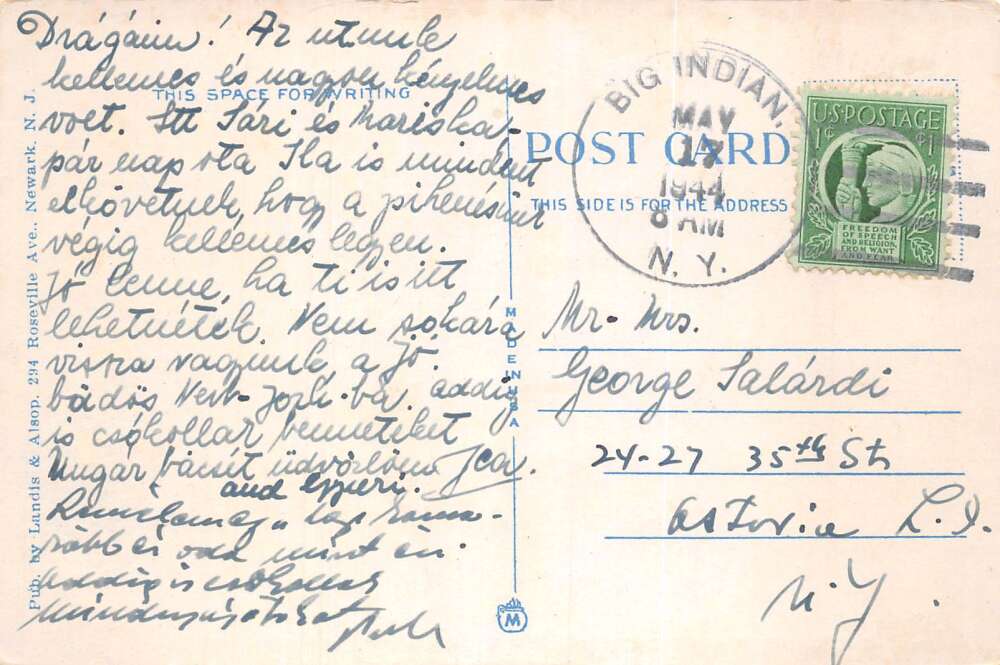 Drágáim! Az utunk
kellemes és nagyon kényelmes
THIS SPACE FOR WRITING
volt. Itt Sári és Mariska
pár nap óta Ila is mindent
elkövetnek, hogy a pihenésünk
végig kellemes legyen.
Jó lenne, ha ti is itt
lehetnétek. Nem sokára
vissza vagyunk a jó
büdös New-York-ba, addig
is csókollak benneteket
Ungár bácsit üdvözlöm Ica.
and
Remélem az
rább és oda mint én.
Addig is csókollak
Mindnyájatokat
Pub. by Landis & Alsop, 294 Roseville Ave., Newark, N. J.
MADE IN USA
M
POST CARD
THIS SIDE IS FOR THE ADDRESS
BIG INDIAN,
MAY
17
1944
8 AM
N. Y.
U.S. POSTAGE
1¢ ¢1
FREEDOM
OF SPEECH
AND RELIGION,
FROM WANT
AND FEAR
Mr. Mrs.
George Salárdi
24-27 35th St
Astoria L.I.
N.Y.